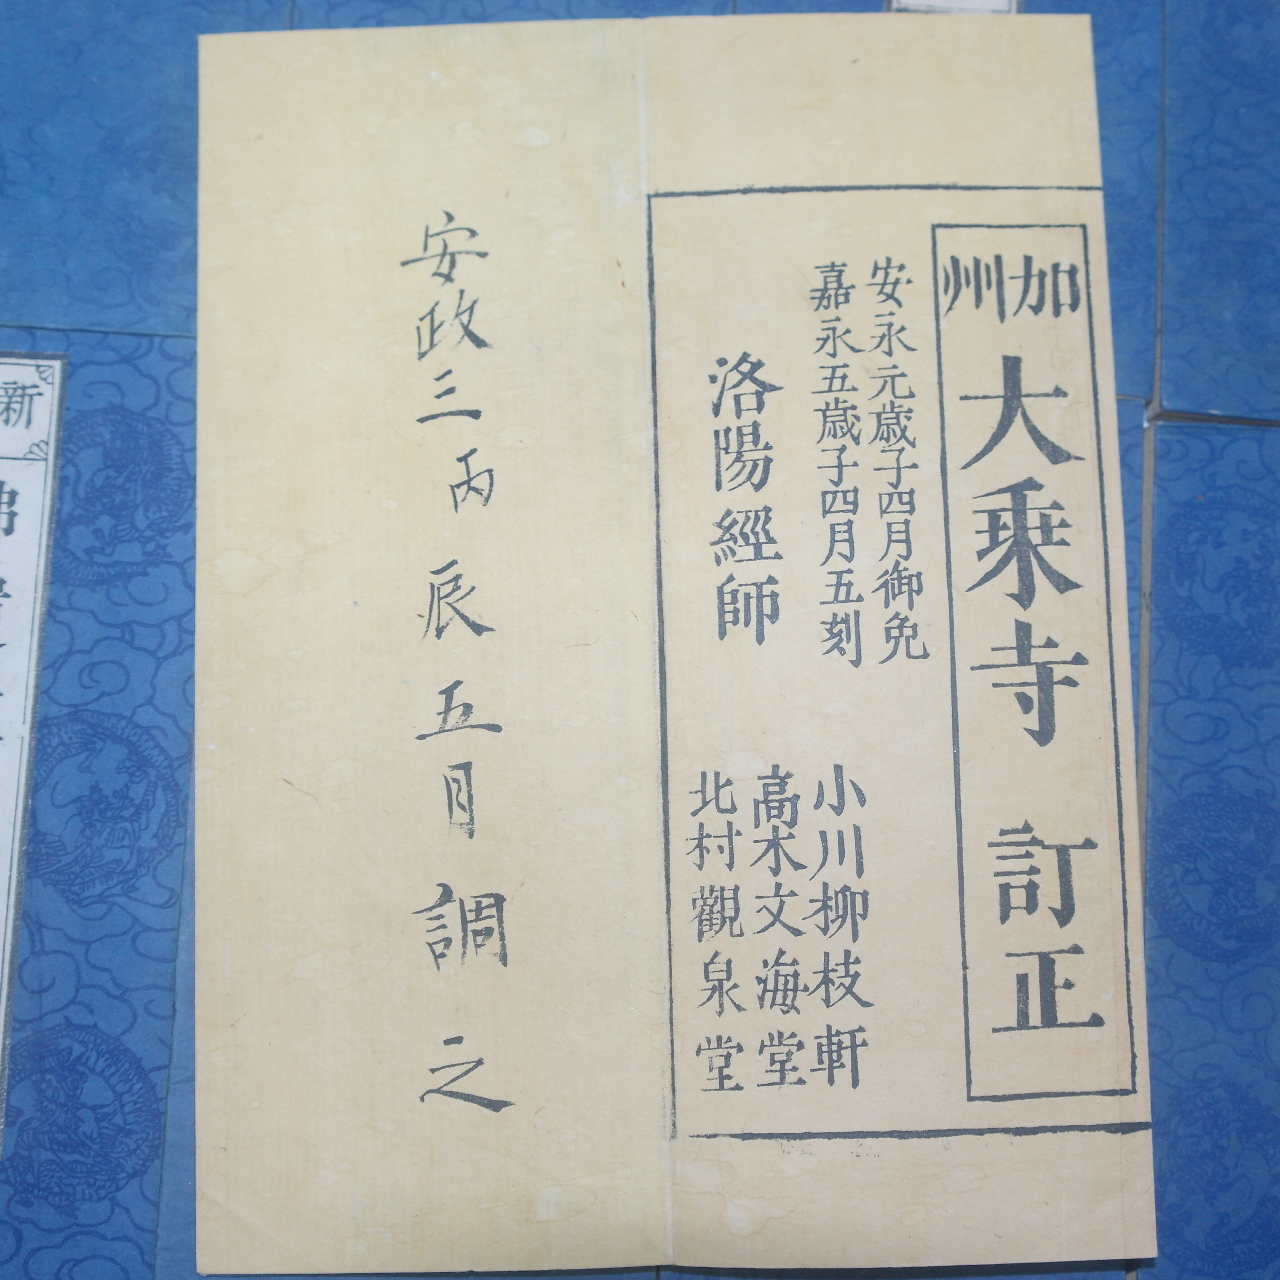 加州
大乗寺訂正
安永元歳子四月御免
嘉永五歳子四月五刻
洛陽經師
小川柳枝軒
高木文海堂
北村觀泉堂
安政三丙辰五月調之
新